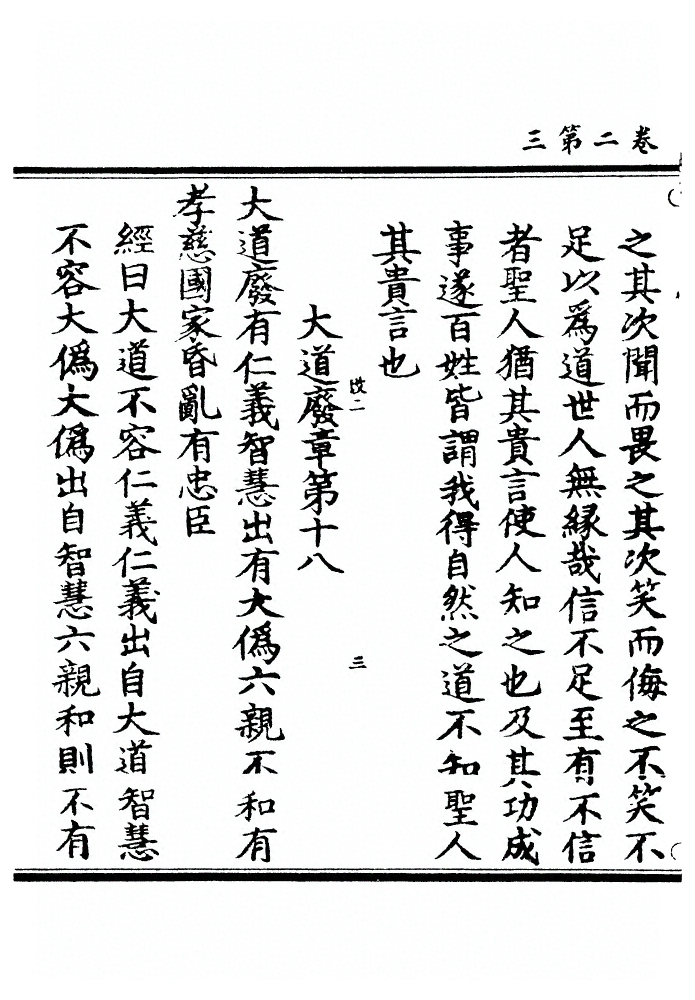 卷二第三
之其次聞而畏之其次笑而侮之不笑不
足以爲道世人無緣哉信不足至有不信
者聖人猶其貴言使人知之也及其功成
事遂百姓皆謂我得自然之道不知聖人
其貴言也
改二
三
大道廢章第十八
大道廢有仁義智慧出有大僞六親不和有
孝慈國家昏亂有忠臣
經曰大道不容仁義仁義出自大道智慧
不容大僞大僞出自智慧六親和則不有